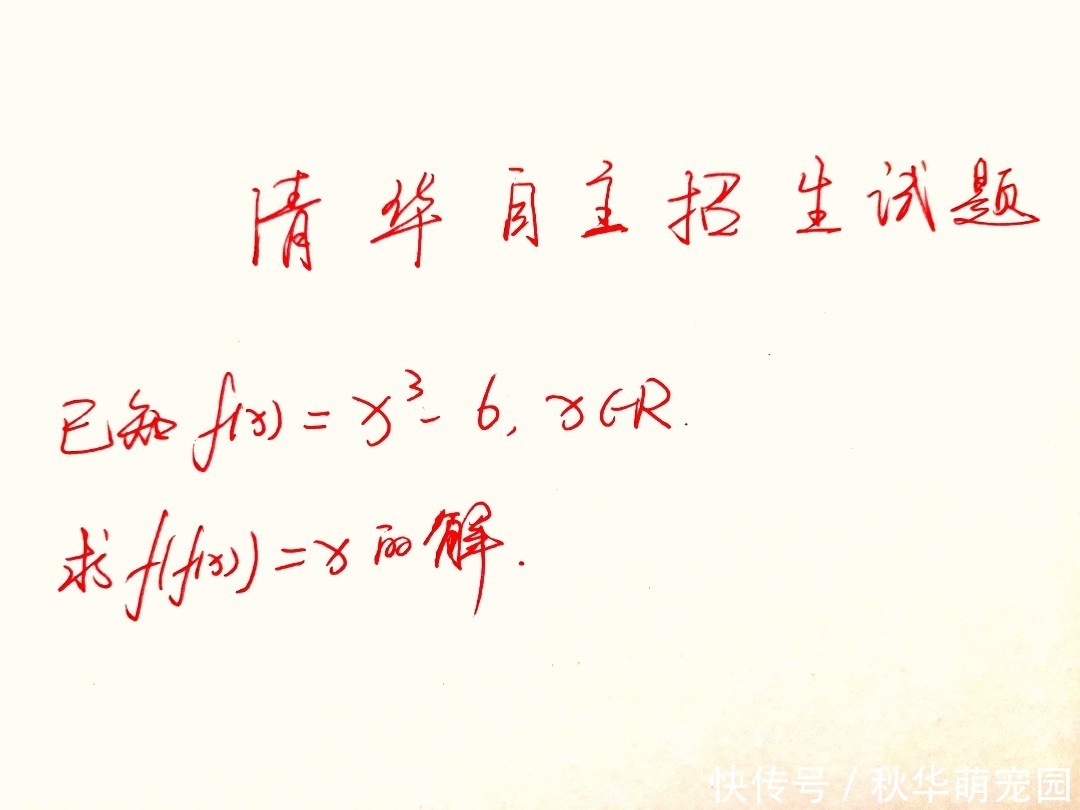 清华自主招生试题
已知 f(x) = x³ - 6, x∈R.
求 f(f(x)) = x 的解.
快传号 / 秋华萌宠园